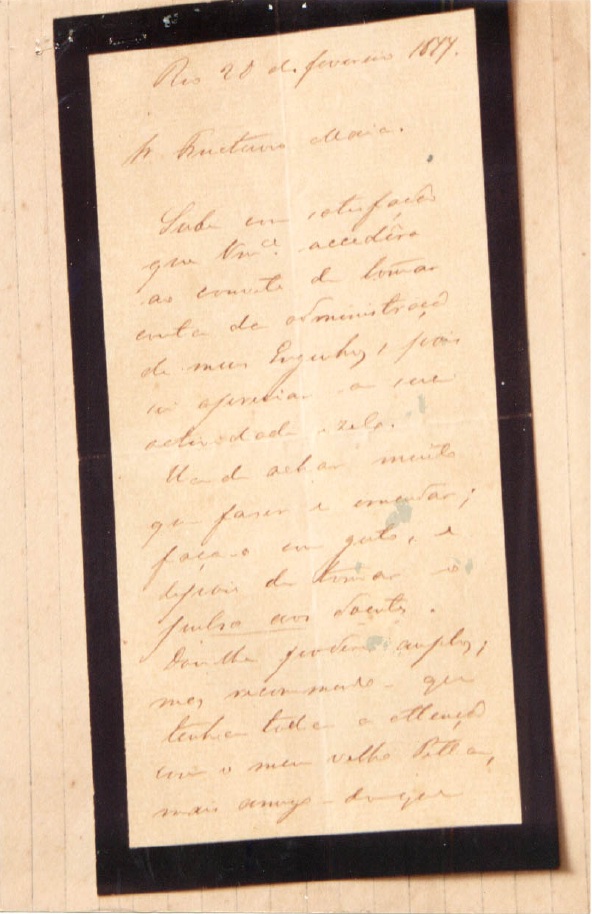 Rio 28 de fevereiro 1877.
Sr Gustavo Maia.
Soube com satisfação
que Vmcê accedêra
ao convite de tomar
conta da administração
de meus Engenhos, pois
sei apreciar a sua
actividade e zelo.
Ha de achar muito
que faser e emendar;
faça-o com geito, e
depois de tomar o
pulso aos doentes.
Dou-lhe poderes amplos;
mas recommendo-que
tenha toda a attenção
com o meu velho
mais amigo do que